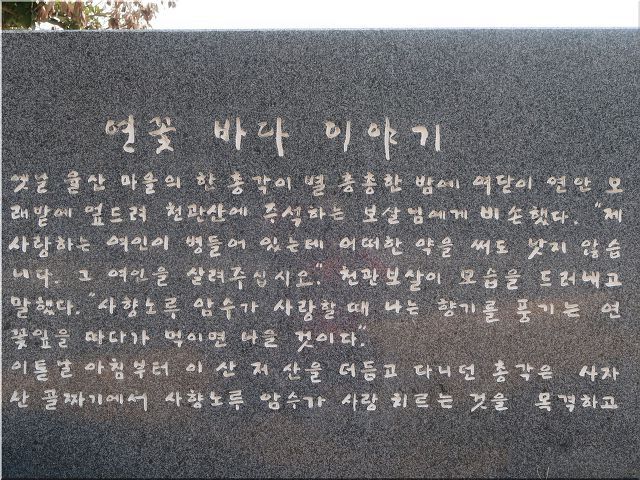 연꽃 바다 이야기
옛날 율산 마을의 한 총각이 별 총총한 밤에 여닫이 연안 모
래밭에 엎드려 천관산에 주석하는 보살님에게 비손했다. “제
사랑하는 여인이 병들어 있는데 어떠한 약을 써도 낫지 않습
니다. 그 여인을 살려주십시요.” 천관보살이 모습을 드러내고
말했다. “사향노루 암수가 사랑할 때 나는 향기를 풍기는 연
꽃잎을 따다가 먹이면 나을 것이다.”
이튿날 아침부터 이 산 저 산을 더듬고 다니던 총각은 사자
산 골짜기에서 사향노루 암수가 사랑 치르는 것을 목격하고